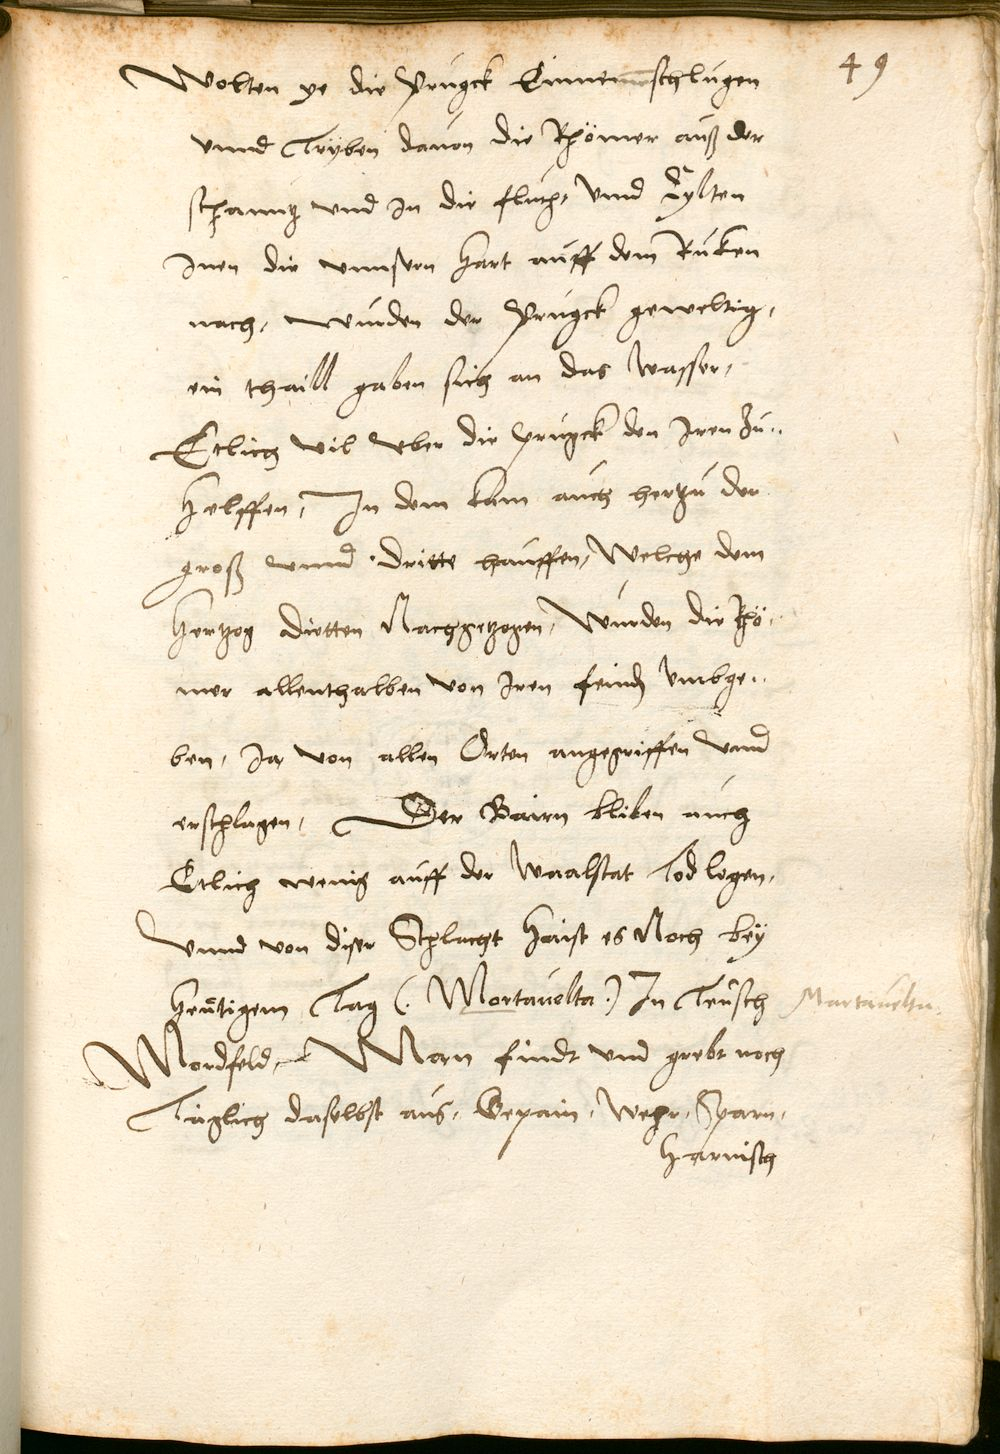 49
Wolten ye die Prugck Einnemen schlugen
vnnd Tryben dauon die Rhömer auß der
schanntz vnnd in die fluch, Vnnd Eylten
Inen die vnnsern hart auff dem Rucken
nach, wurden der Prugck geweltig,
ein thaill gaben sich an das wasser,
Etlich vil vber die prugck den Iren zu¨
helffen, In dem kam auch hertzu der
groß vnnd dritte hauffen, Welche dem
Hertzog dietten Nachgetzogen, Wurden die Rhö¨
mer allenthalben von Iren feindt vmbge¨
ben, Ja von allen Orten angegriffen vnnd
erschlagen, Der Bairn bliben auch
Etlich wenig auff der Waalstat Tod ligen,
Vnnd von diser Schlacht haist es Noch bey
heutigem Tag (. Mortauelta .) In Teusch
Martauelta.
Mordfeld, Man findt vnnd grebt noch
Täglich daselbst aus, Gepain, Wehr, Sparn,
Harnisch